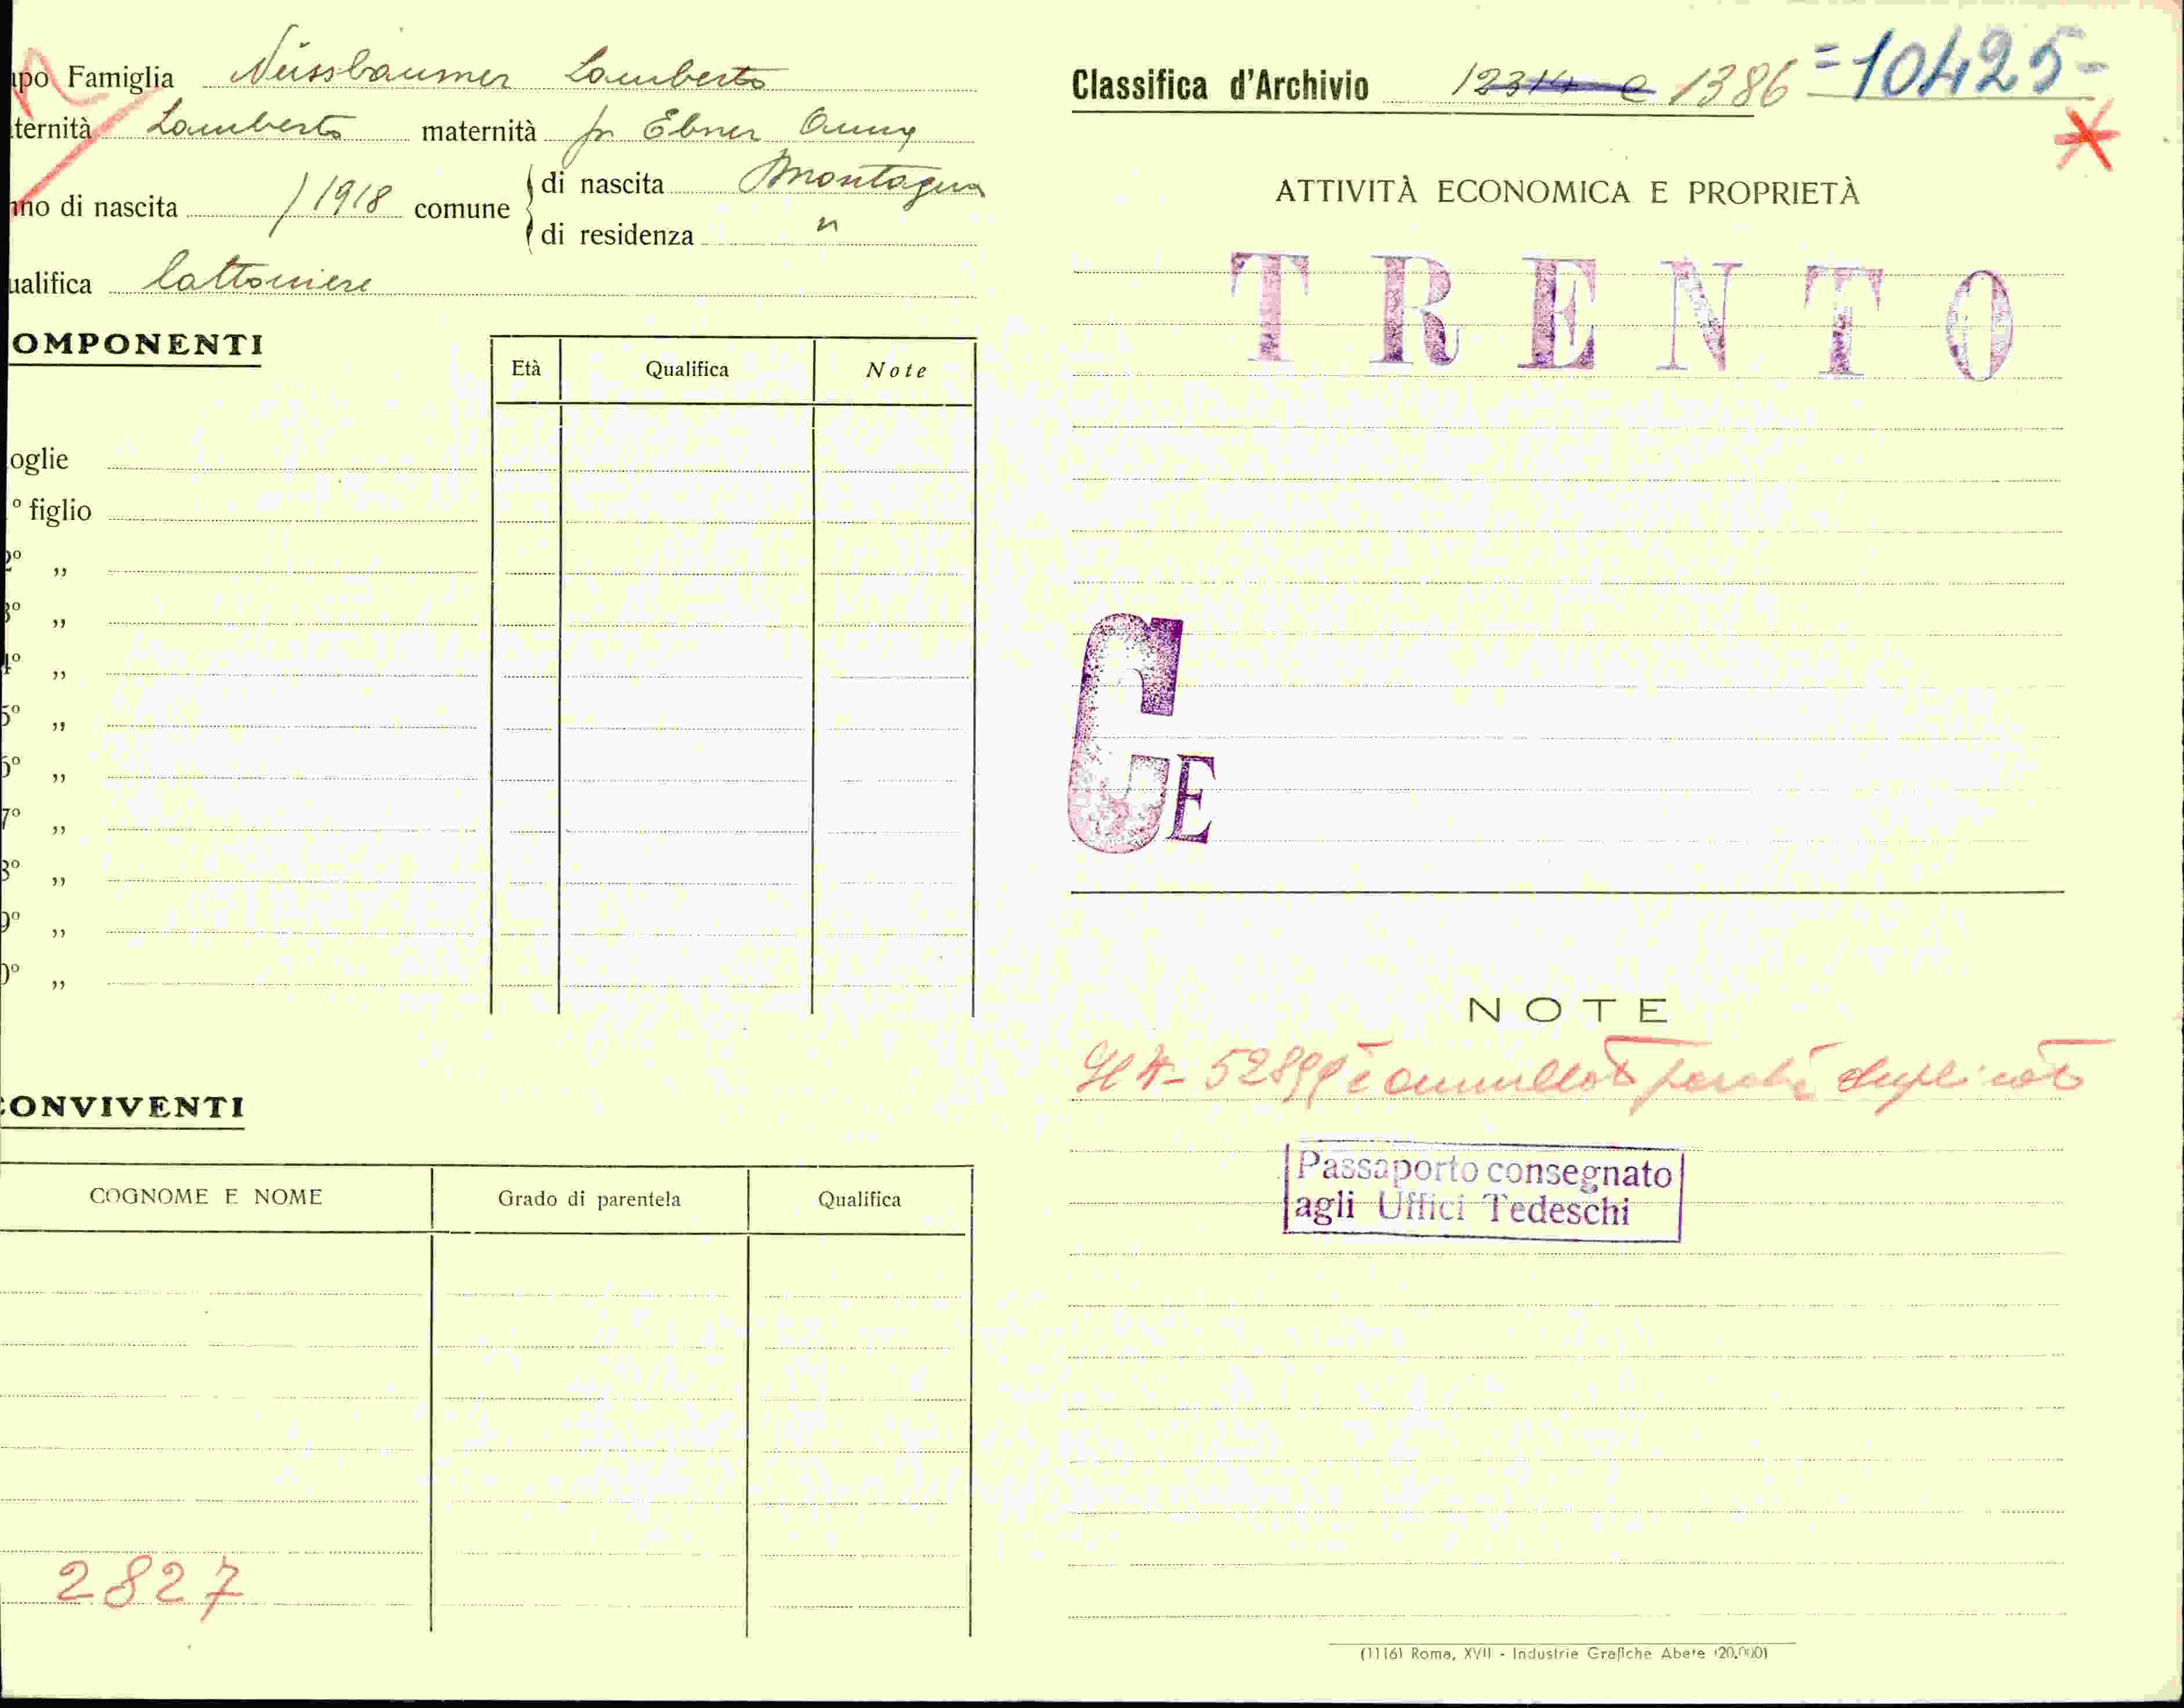 apo Famiglia Nüssbaumer Lamberto
ternità Lamberto maternità fr Ebner Anny
nno di nascita /1918 comune di nascita Montagna
di residenza "
ualifica lattoniere
OMPONENTI
Età Qualifica Note
oglie
º figlio
2º "
3º "
4º "
5º "
6º "
7º "
8º "
9º "
0º "
CONVIVENTI
COGNOME E NOME Grado di parentela Qualifica
2827
Classifica d'Archivio 12314 e 1386 =10425-
ATTIVITÀ ECONOMICA E PROPRIETÀ
TRENTO
GE
NOTE
Il N- 52899 è annullato perchè duplicato
Passaporto consegnato
agli Uffici Tedeschi
(1116) Roma, XVII - Industrie Grafiche Abete (20.000)